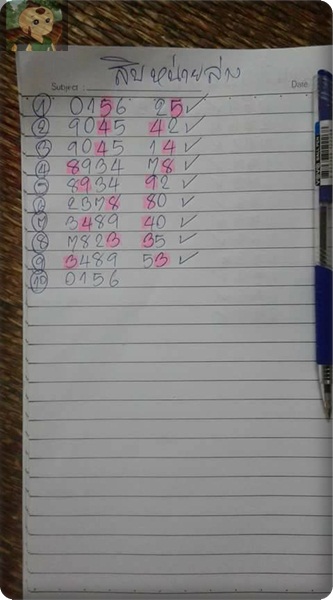 สิบหน่ายล่าง
Subject Date
1 0156 25 ✓
2 9045 42 ✓
3 9045 14 ✓
4 8934 78 ✓
5 8934 92 ✓
6 2378 80 ✓
7 3489 40 ✓
8 7823 35 ✓
9 3489 53 ✓
10 0156